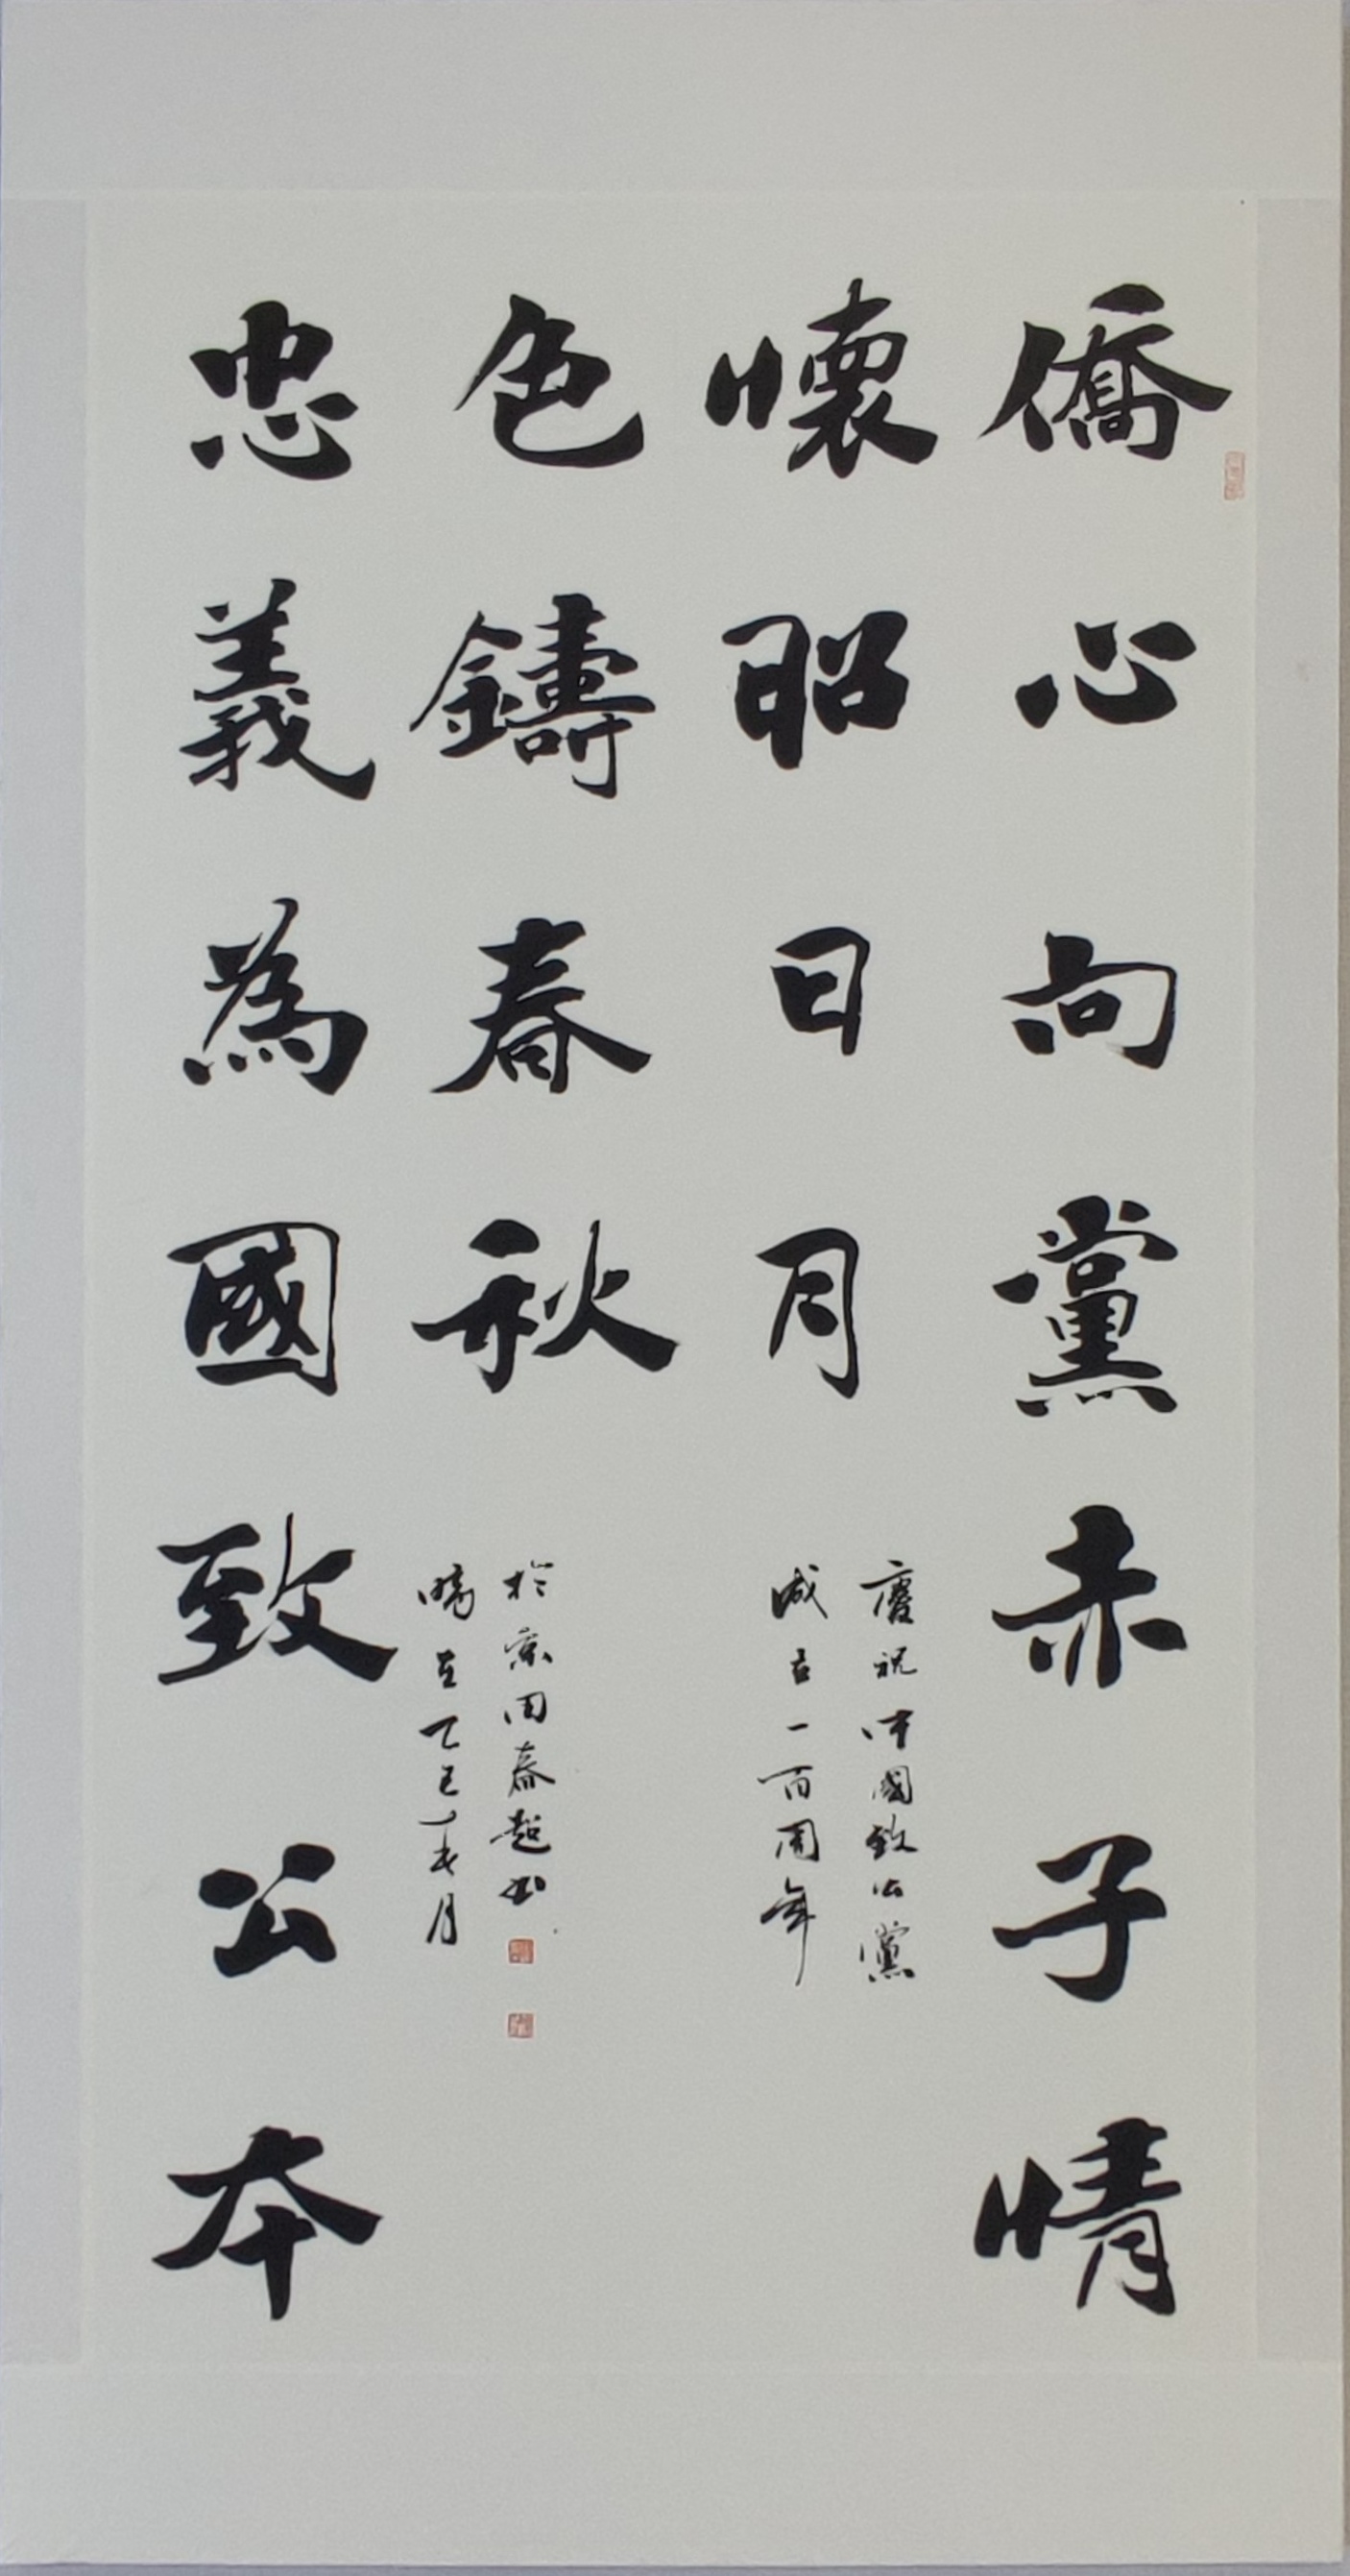 僑心向黨赤子情
懷昭日月
慶祝中國致公黨
成立一百周年
忠義為國致公本
色鑄春秋
於京周春超書
乙巳月